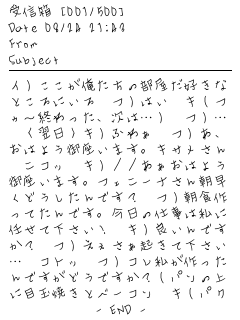 受信箱 [001/500]
Date 08/24 21:48
From
Subject
イ）ここが俺た方の部屋だ好きな
ところにいろ フ）はい キ（フ
ゥ〜終わった、次は…） フ）…
…〈翌日〉キ）ふわぁ フ）あ、
おはよう御座います。キサメさん
…ニコッ キ）//あぁおはよう
御座います。フェニーナさん朝早
くどうしたんです？フ）朝食作
ってたんです。今日の仕事は私に
任せて下さい！ キ）良いんです
か？ フ）ええさぁ起きて下さい
… コトッ フ）コレ私が作った
んですがどうですか？（パンの上
に目玉焼きとベーコン キ（パク
- END -